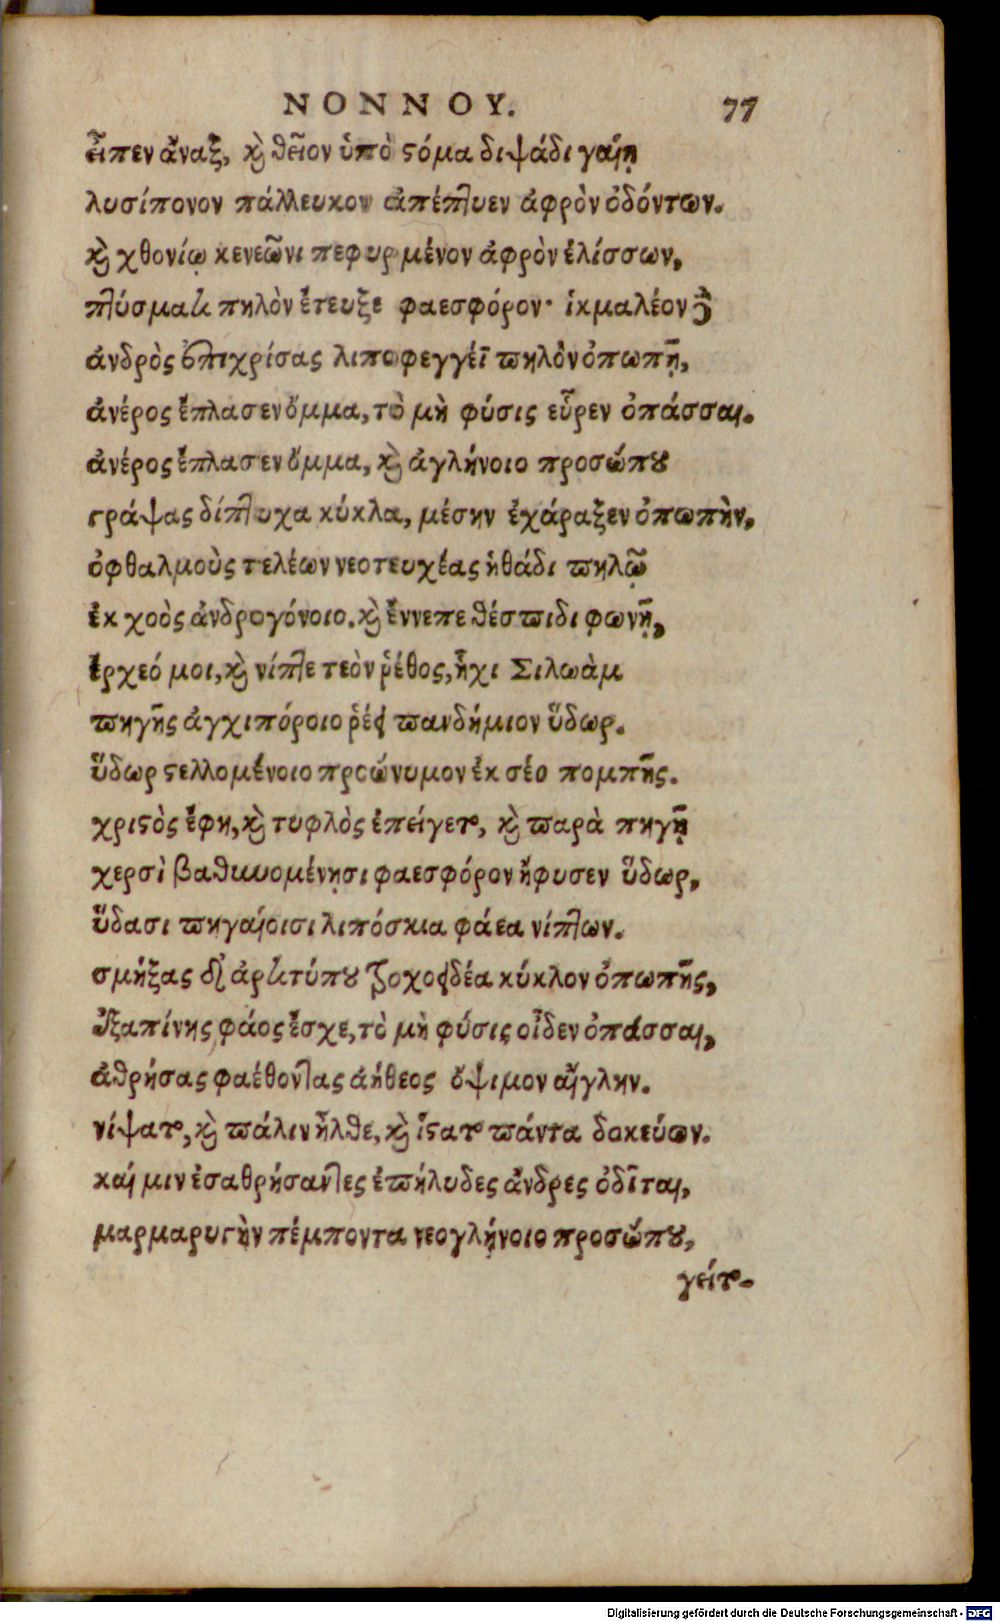 ΝΟΝΝΟΥ. 77
εἶπεν ἄναξ, καὶ θεῖον ὑπὸ στόμα διψάδι γαίῃ
λυσίπονον πάλλευκον ἀπέπτυεν ἀφρὸν ὀδόντων.
καὶ χθονίῳ κενεῶνι πεφυρμένον ἀφρὸν ἑλίσσων,
πτύσματι πηλὸν ἔτευξε φαεσφόρον· ἰκμαλέον δὲ
ἀνδρὸς ἐπιχρίσας λιποφεγγέϊ πηλὸν ὀπωπῇ,
ἀνέρος ἔπλασεν ὄμμα, τὸ μὴ φύσις εὗρεν ὀπάσσαι.
ἀνέρος ἔπλασεν ὄμμα, καὶ ἀγλήνοιο προσώπου
γράψας δίπτυχα κύκλα, μέσην ἐχάραξεν ὀπωπὴν,
ὀφθαλμοὺς τελέων νεοτευχέας ἠθάδι πηλῷ
ἐκ χοὸς ἀνδρογόνοιο. καὶ ἔννεπε θέσπιδι φωνῇ,
ἔρχεό μοι, καὶ νίπτε τεὸν ῥέθος, ἧχι Σιλωὰμ
πηγῆς ἀγχιπόροιο ῥέει πανδήμιον ὕδωρ.
ὕδωρ στελλομένοιο προώνυμον ἐκ σέο πομπῆς.
χριστὸς ἔφη, καὶ τυφλὸς ἐπείγετο, καὶ παρὰ πηγῇ
χερσὶ βαθυνομένῃσι φαεσφόρον ἤφυσεν ὕδωρ,
ὕδασι πηγαίοισι λιπόσκια φάεα νίπτων.
σμήξας δ' ἀρτιτύπου τροχοειδέα κύκλον ὀπωπῆς,
ἐξαπίνης φάος ἔσχε, τὸ μὴ φύσις οἶδεν ὀπάσσαι,
ἀθρήσας φαέθοντας ἀήθεος ὄψιμον αἴγλην.
νίψατο, καὶ πάλιν ἦλθε, καὶ ἵστατο πάντα δοκεύων.
καί μιν ἐσαθρήσαντες ἐπήλυδες ἄνδρες ὁδῖται,
μαρμαρυγὴν πέμποντα νεογλήνοιο προσώπου,
γείτο-
Digitalisierung gefördert durch die Deutsche Forschungsgemeinschaft - DFG